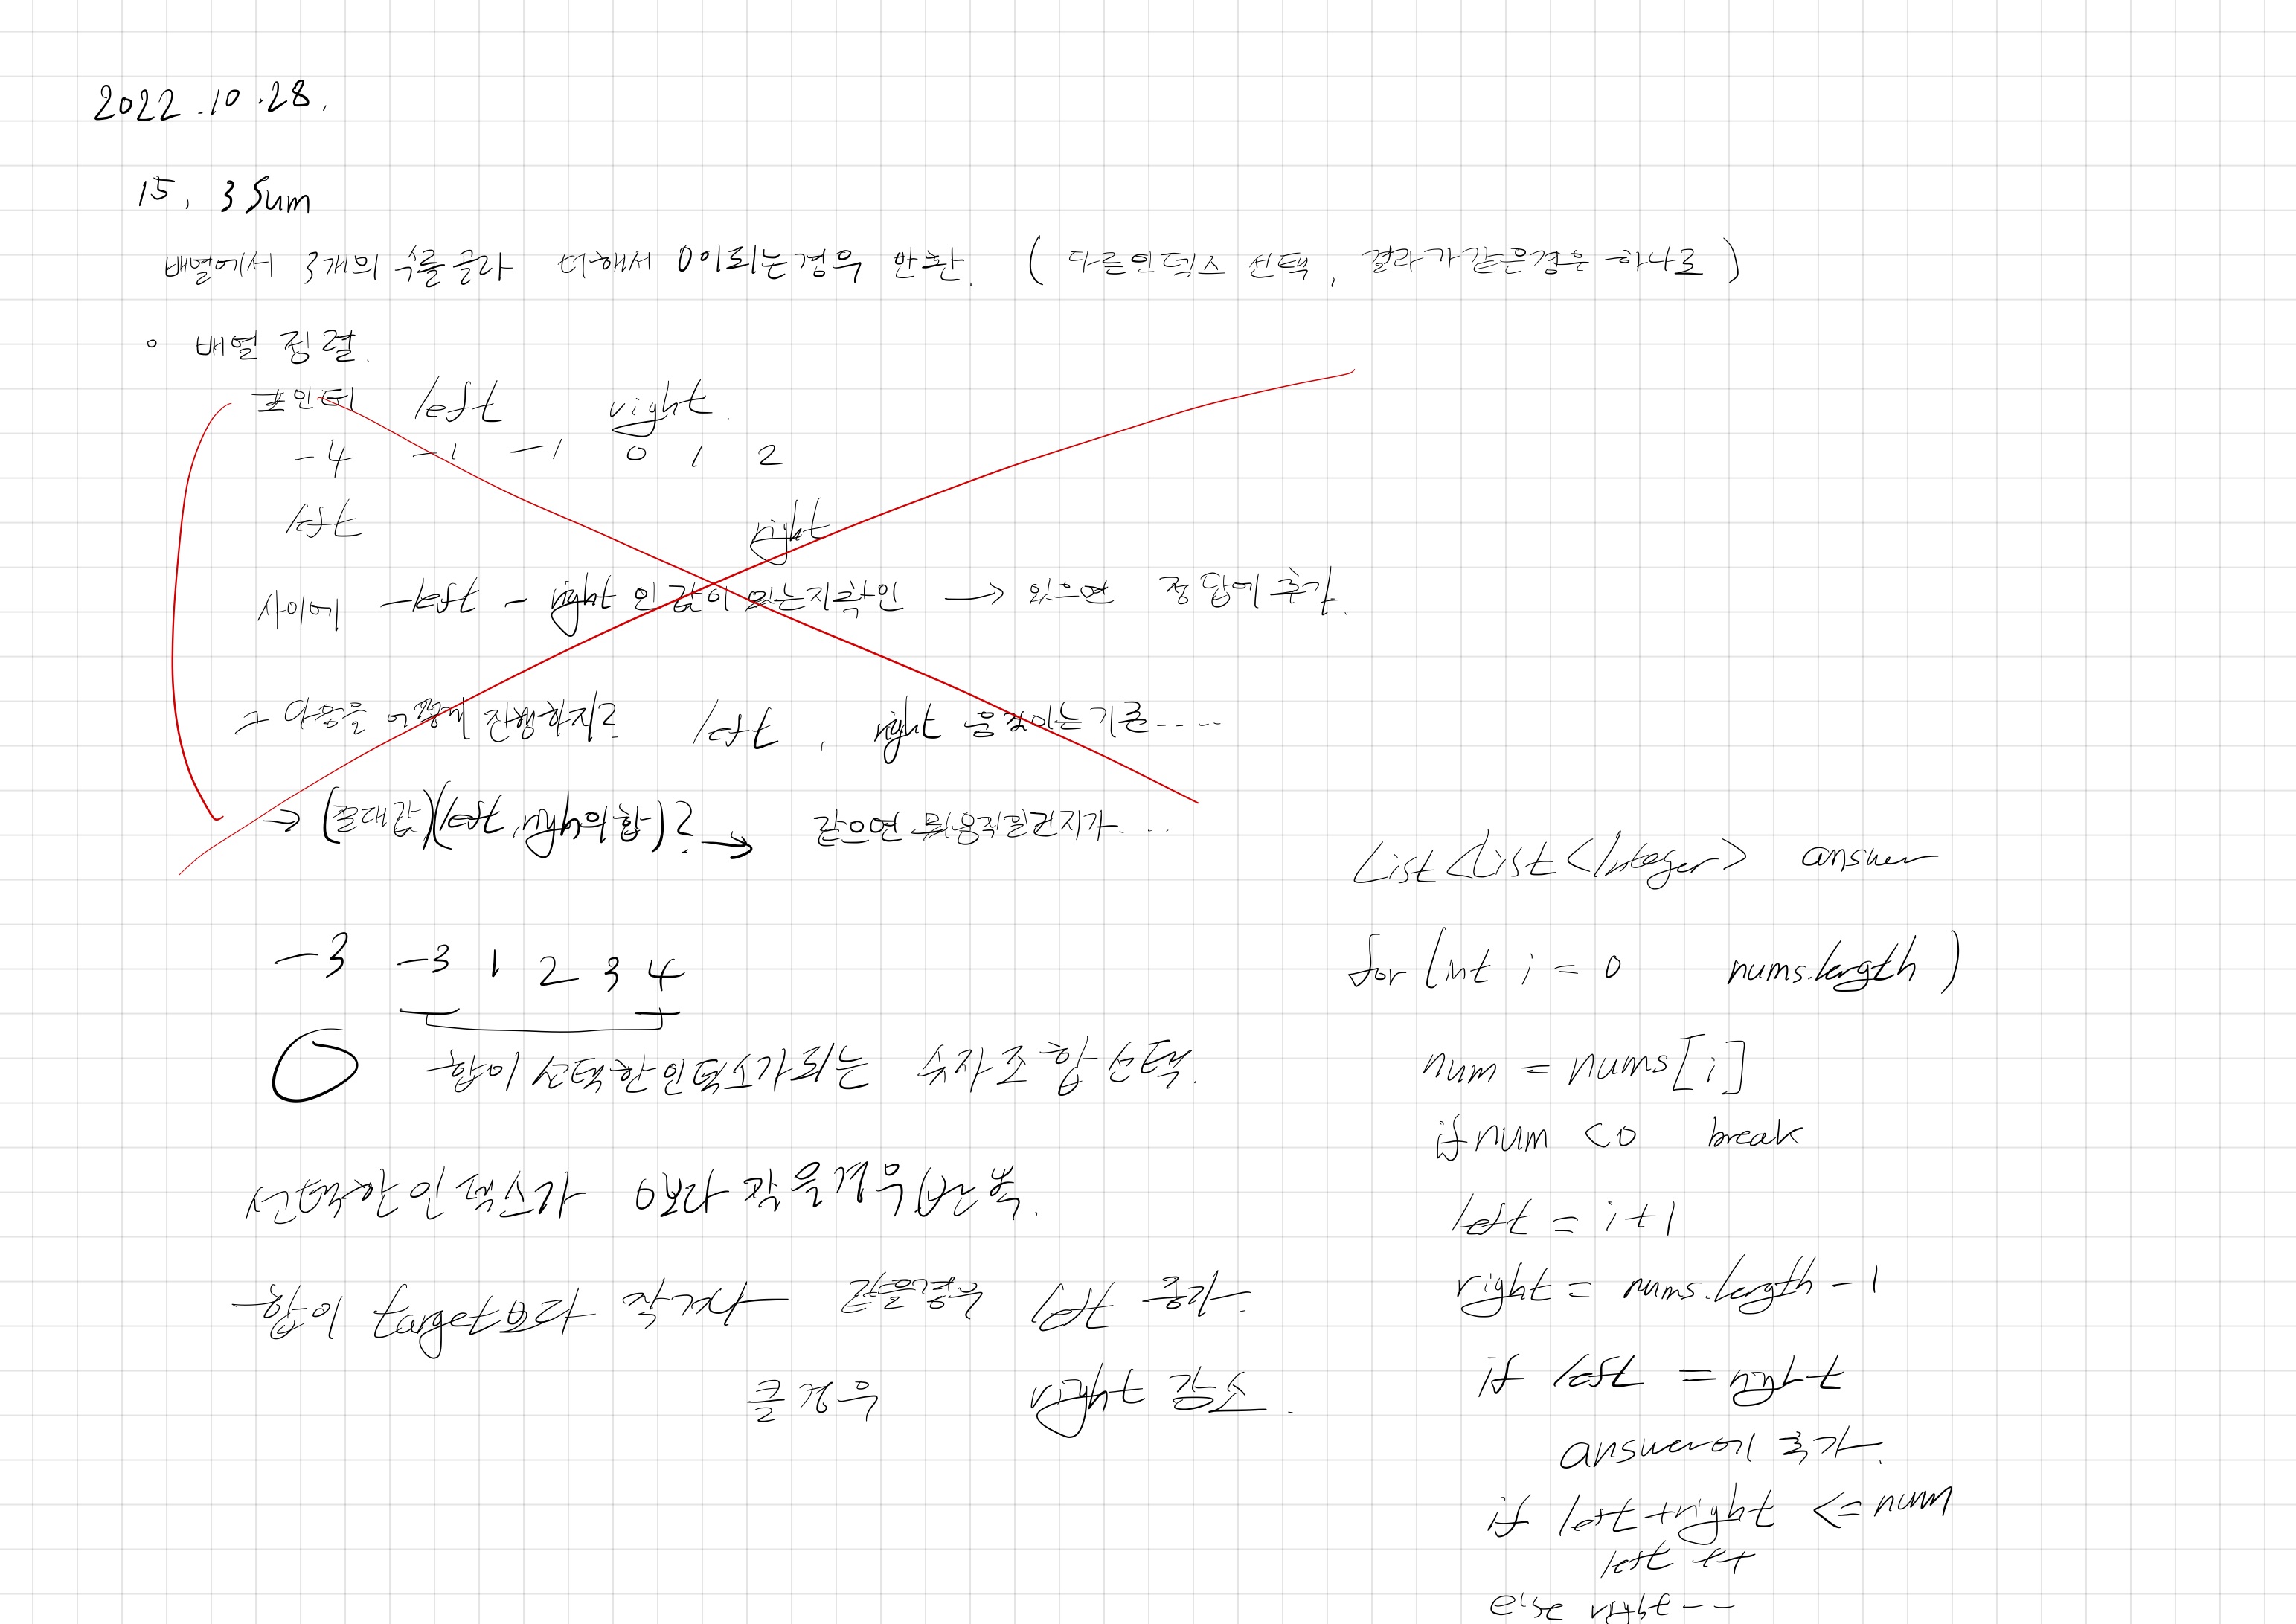 2022.10.28.
15. 3Sum
배열에서 3개의 수를 골라 더해서 0이되는경우 반환. ( 다른인덱스 선택, 결과가같은경우 하나로 )
◦ 배열 정렬.
포인터 left right.
-4 -1 -1 0 1 2
left right
사이에 -left - right 인 값이 있는지확인 → 있으면 정답에 추가.
그 다음을 어떻게 진행하지? left, right 움직이는기준....
→ (절대값)(left, righ의합)? → 같으면 뭐움직일건지가...
-3 -3 1 2 3 4
합이 선택한인덱스가되는 숫자조합선택.
선택한인덱스가 0보다 작을경우반복.
합이 target보다 작거나 같을경우 left 증가.
클경우 right 감소.
List<List<Integer> answer
for (int i = 0 nums.length )
num = nums[i]
if num <0 break
left = i+1
right = nums.length -1
if left = right
answer에 추가.
if left +right <= num
left ++
else right--